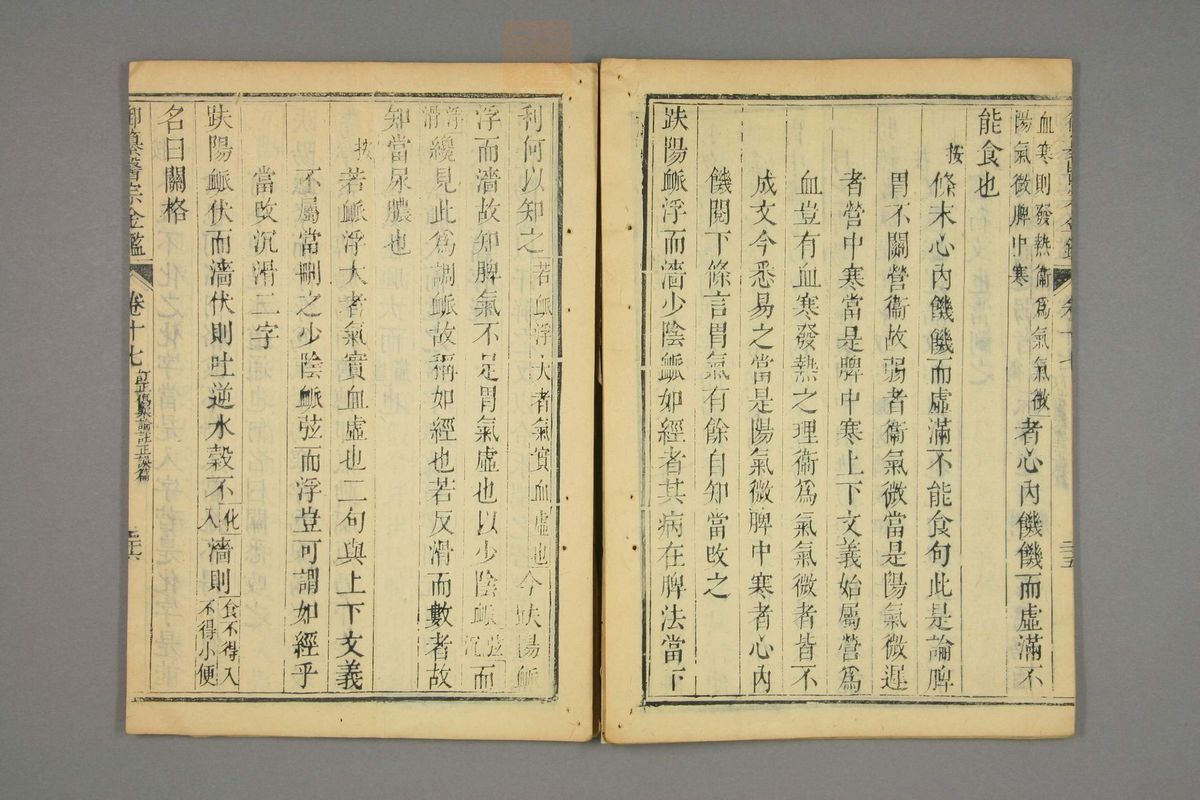 血寒則發熱衞爲氣氣微
陽氣微脾中寒
者心內饑饑而虛滿不
能食也
按
條末心內饑饑而虛滿不能食句此是論脾
胃不關營衞故弱者衞氣微當是陽氣微遲
者營中寒當是脾中寒上下文義始屬營爲
血豈有血寒發熱之理衞爲氣氣微者皆不
成文今悉易之當是陽氣微脾中寒者心內
饑閱下條言胃氣有餘自知當攺之
趺陽脈浮而濇少陰脈如經者其病在脾法當下
三十五
利何以知之
若脈浮大者氣實血虛也
今趺陽脈
浮而濇故知脾氣不足胃氣虛也以少陰脈
弦
沉
而
浮
滑
纔見此爲調脈故稱如經也若反滑而數者故
知當尿膿也
按
若脈浮大者氣實血虛也二句與上下文義
不屬當刪之少陰脈弦而浮豈可謂如經乎
當攺沉滑二字
趺陽脈伏而濇伏則吐逆水穀不
化
入
濇則
食不得入
不得小便
名曰關格
御纂醫宗金鑑
卷十七
訂正傷寒論註正誤篇
三十六